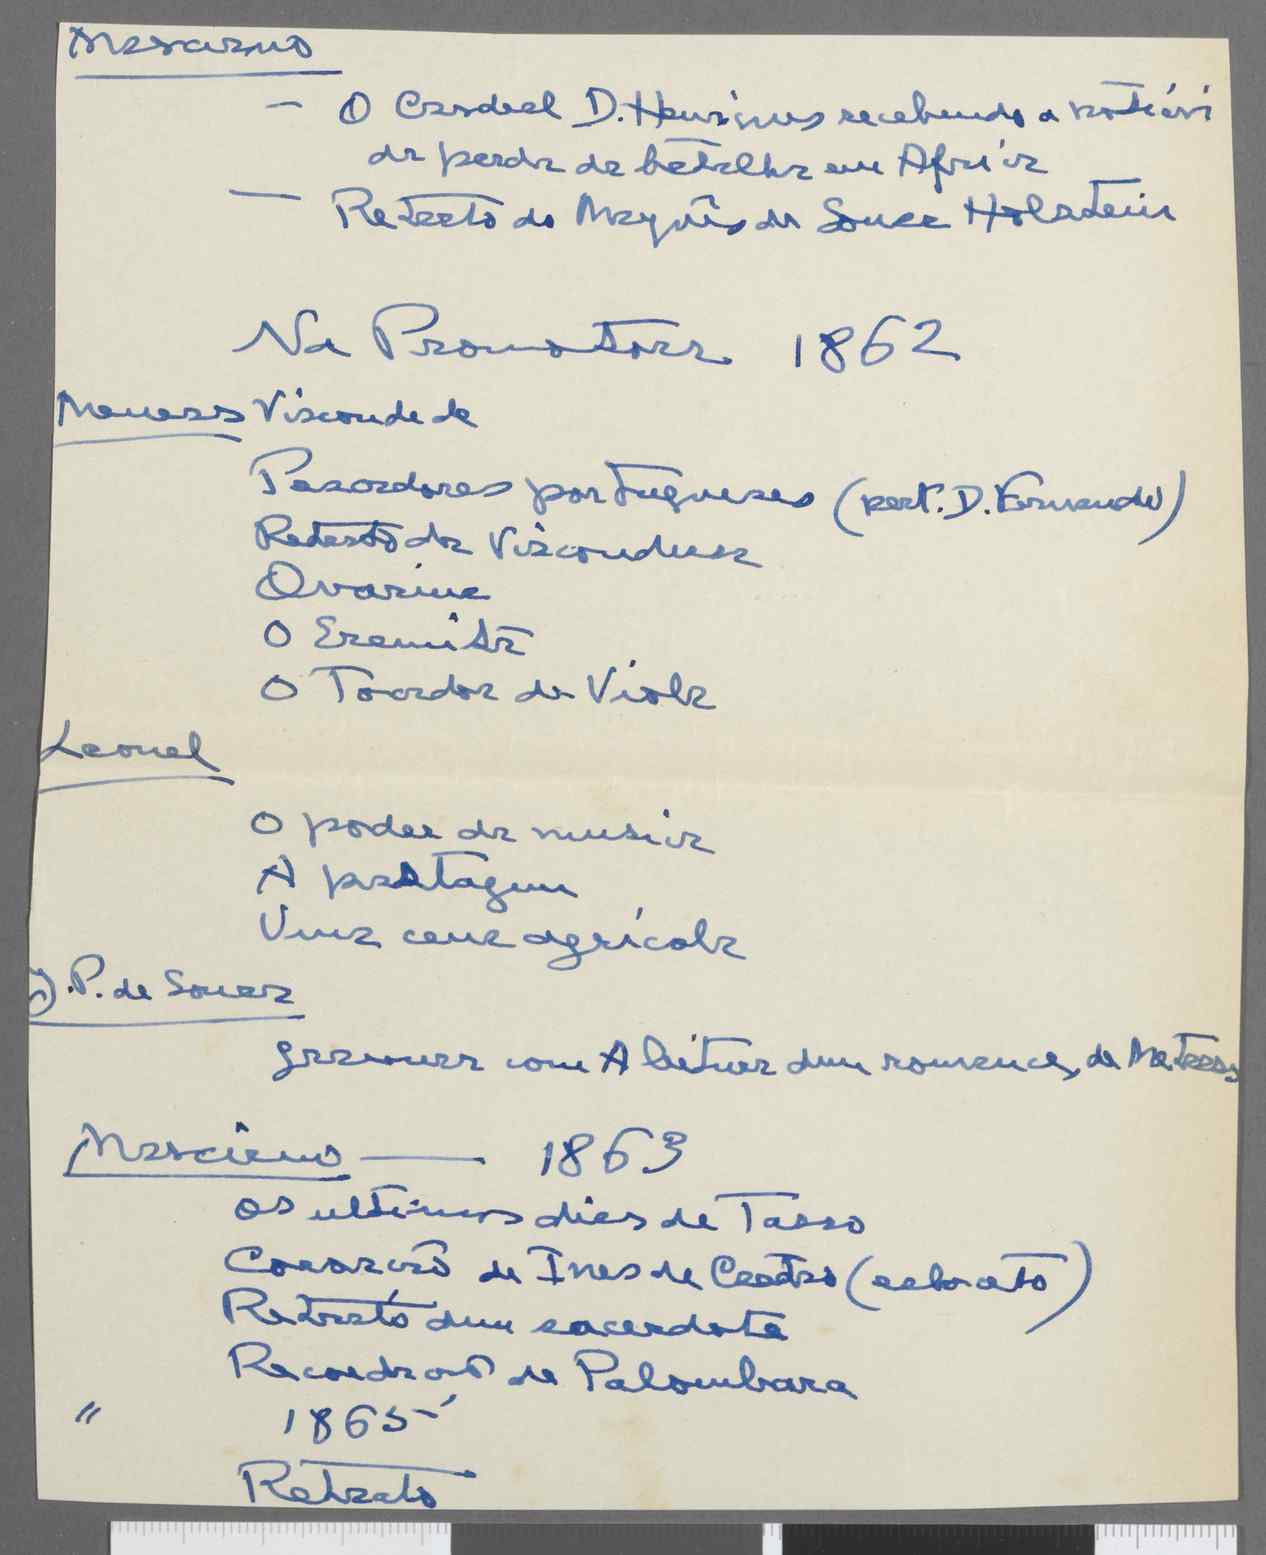 Marciano
— O Cardeal D. Henrique recebendo a notícia
da perda da batalha em Africa
— Retrato do Marquês de Sousa Holstein
Na Promotora 1862
Meneses Visconde de
Pescadores portugueses (pert. D. Fernando)
Retrato da Viscondessa
Ovarina
O Eremita
O Tocador de Viola
Leonel
O poder da musica
A portagem
Uma cena agrícola
J. P. de Sousa
gravura com A leitura dum romance, de Metrass
Marciano — 1863
Os ultimos dias de Tasso
Coroação de Ines de Castro (esboceto)
Retrato dum sacerdote
Recordação de Palombara
" 1865
Retrato